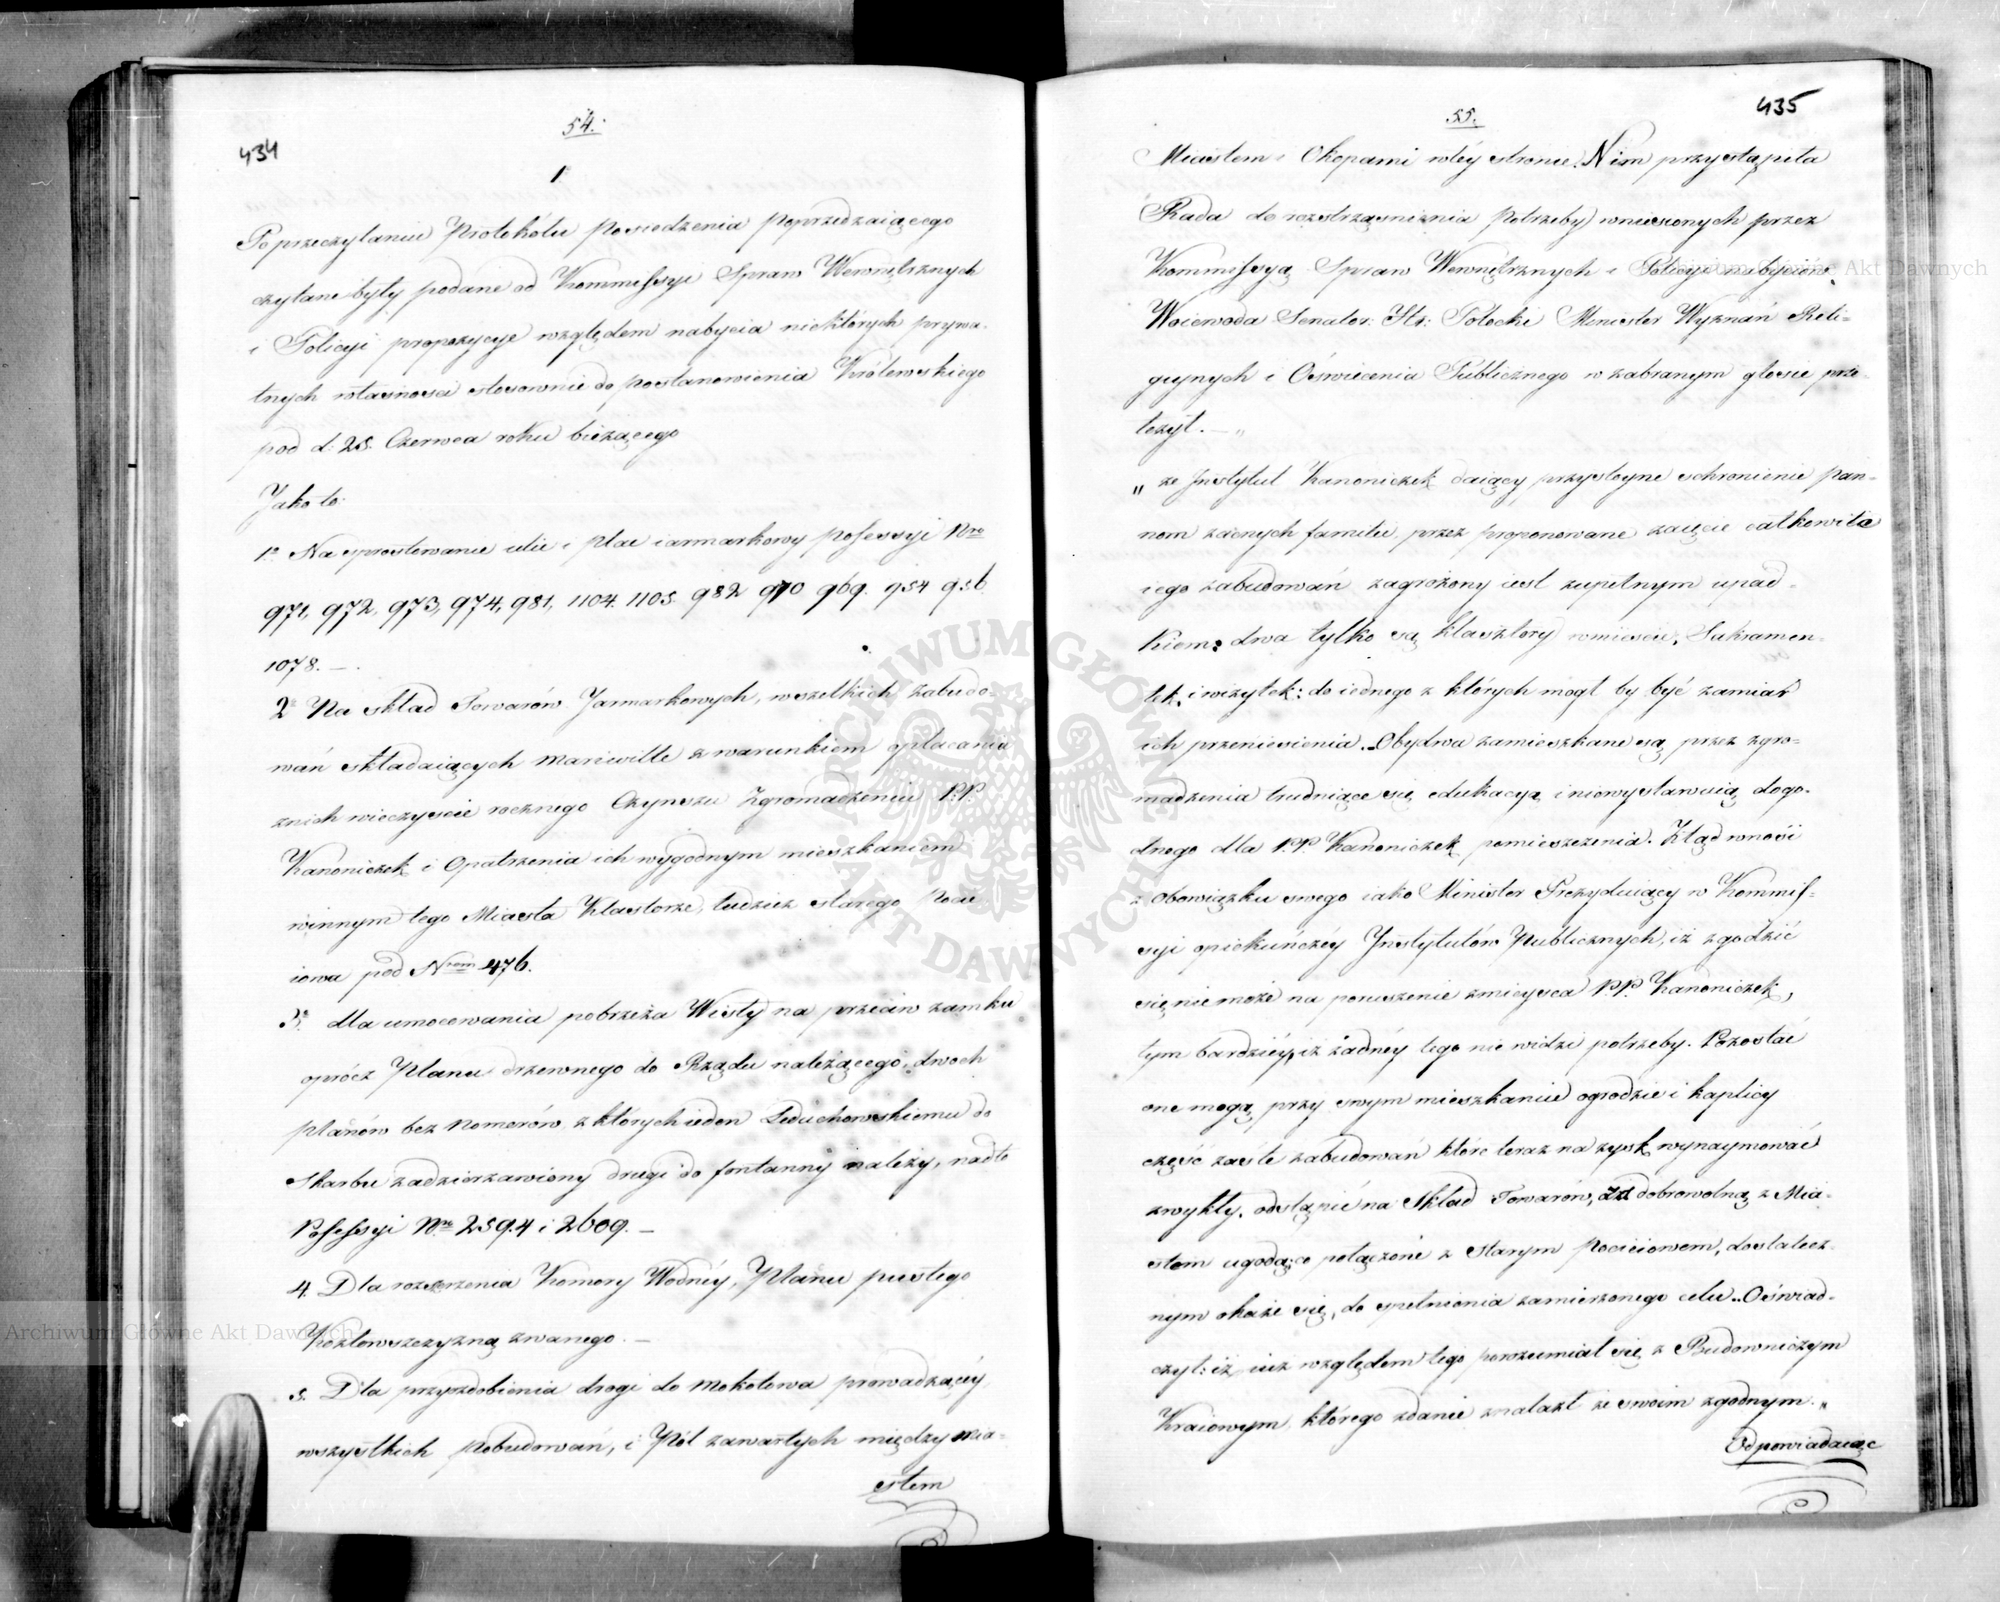 54.
434
1
Po przeczytaniu Protokółu Posiedzenia Poprzedzaiącego
czytane były podane od Kommissyi Spraw Wewnętrznych
i Policyi propozycye względem nabycia niektórych prywa-
tnych własności stosownie do postanowienia Królewskiego
pod d: 25. Czerwca roku bieżącego
Jako to:
1º Na sprostowanie ulic i plac iarmarkowy possessyi Nro
971, 972, 973, 974, 981, 1104. 1105. 982 970 969. 954 956
1078. —
2º Na skład Towarów Jarmarkowych, wszelkich zabudo-
wań składaiących mariwille z warunkiem opłacania
znich wieczyście rocznego Czynszu Zgromadzeniu P.P.
Kanoniczek i Opatrzenia ich wygodnym mieszkaniem
winnym tego Miasta Klasztorze, tudzież starego Pocie
iowa pod Nrem 476.
3º dla umocowania pobrzeża Wisły na przeciw zamku
oprócz Planu drzewnego do Rządu należącego, dwoch
planów bez Nomerów z których ieden Leduchowskiemu do
Skarbu zadzierzawiony drugi do fontanny należy, nadto
Possessyi Nro 2594 i 2609. —
4. Dla rozszerzenia Komory Wodnéy, Planu pustego
Kozłowszczyzną zwanego. —
5. Dla przyozdobienia drogi do Mokotowa prowadzącéy,
wszystkich pobudowań, i Pól zawartych między mia-
stem
55.
435
Miastem i Okopami wtéy stronie. Nim przystąpiła
Rada do rozstrząśnienia Potrzeby wniesionych przez
Kommissyą Spraw Wewnętrznych i Policyi nabyciów,
Woiewoda Senator: Str: Potocki Minister Wyznań Reli-
giynych i Oświecenia Publicznego w zabranym głosie prze-
łożył. — „
„ że Jnstytut Kanoniczek daiący przystoyne schronienie pan-
nom zacnych familii, przez proponowane zaięcie całkowite
iego zabudowań zagrożony iest zupełnym upad-
kiem: dwa tylko są klasztory wmieście, Sakramen-
tek, i wizytek: do iednego z których mógł by być zamiar
ich przeniesienia. Obydwa zamieszkane są, przez zgro-
madzenia trudniące się edukacyą i niewystawuią dogo-
dnego dla P.P. Kanoniczek pomieszczenia. Ztąd wnosi
z obowiązku swego iako Minister Prezyduiący w Kommis-
syi opiekuńczéy Jnstytutów Publicznych, iż zgodzić
się nie może na poruszenie zmieysca P.P. Kanoniczek,
tym bardziéy, iż żadnéy tego nie widzi potrzeby. Pozostać
one mogą przy swym mieszkaniu ogrodzie i kaplicy
część zaś te zabudowań które teraz na zysk wynaymować
zwykły, odstąpić na Skład Towarów, za dobrowolną z Mia-
stem ugodą; co połączone z Starym Pocieiowem, dostatecz-
nym okaże się, do spełnienia zamierzonego celu. Oświad-
czył: iż iuż względem tego porozumiał się z Budowniczym
Kraiowym, którego zdanie znalazł ze swoim zgodnym. „
Odpowiadaiąc
Archiwum Główne Akt Dawnych
Archiwum Główne Akt Dawnych
ARCHIWUM GŁÓWNE AKT DAWNYCH